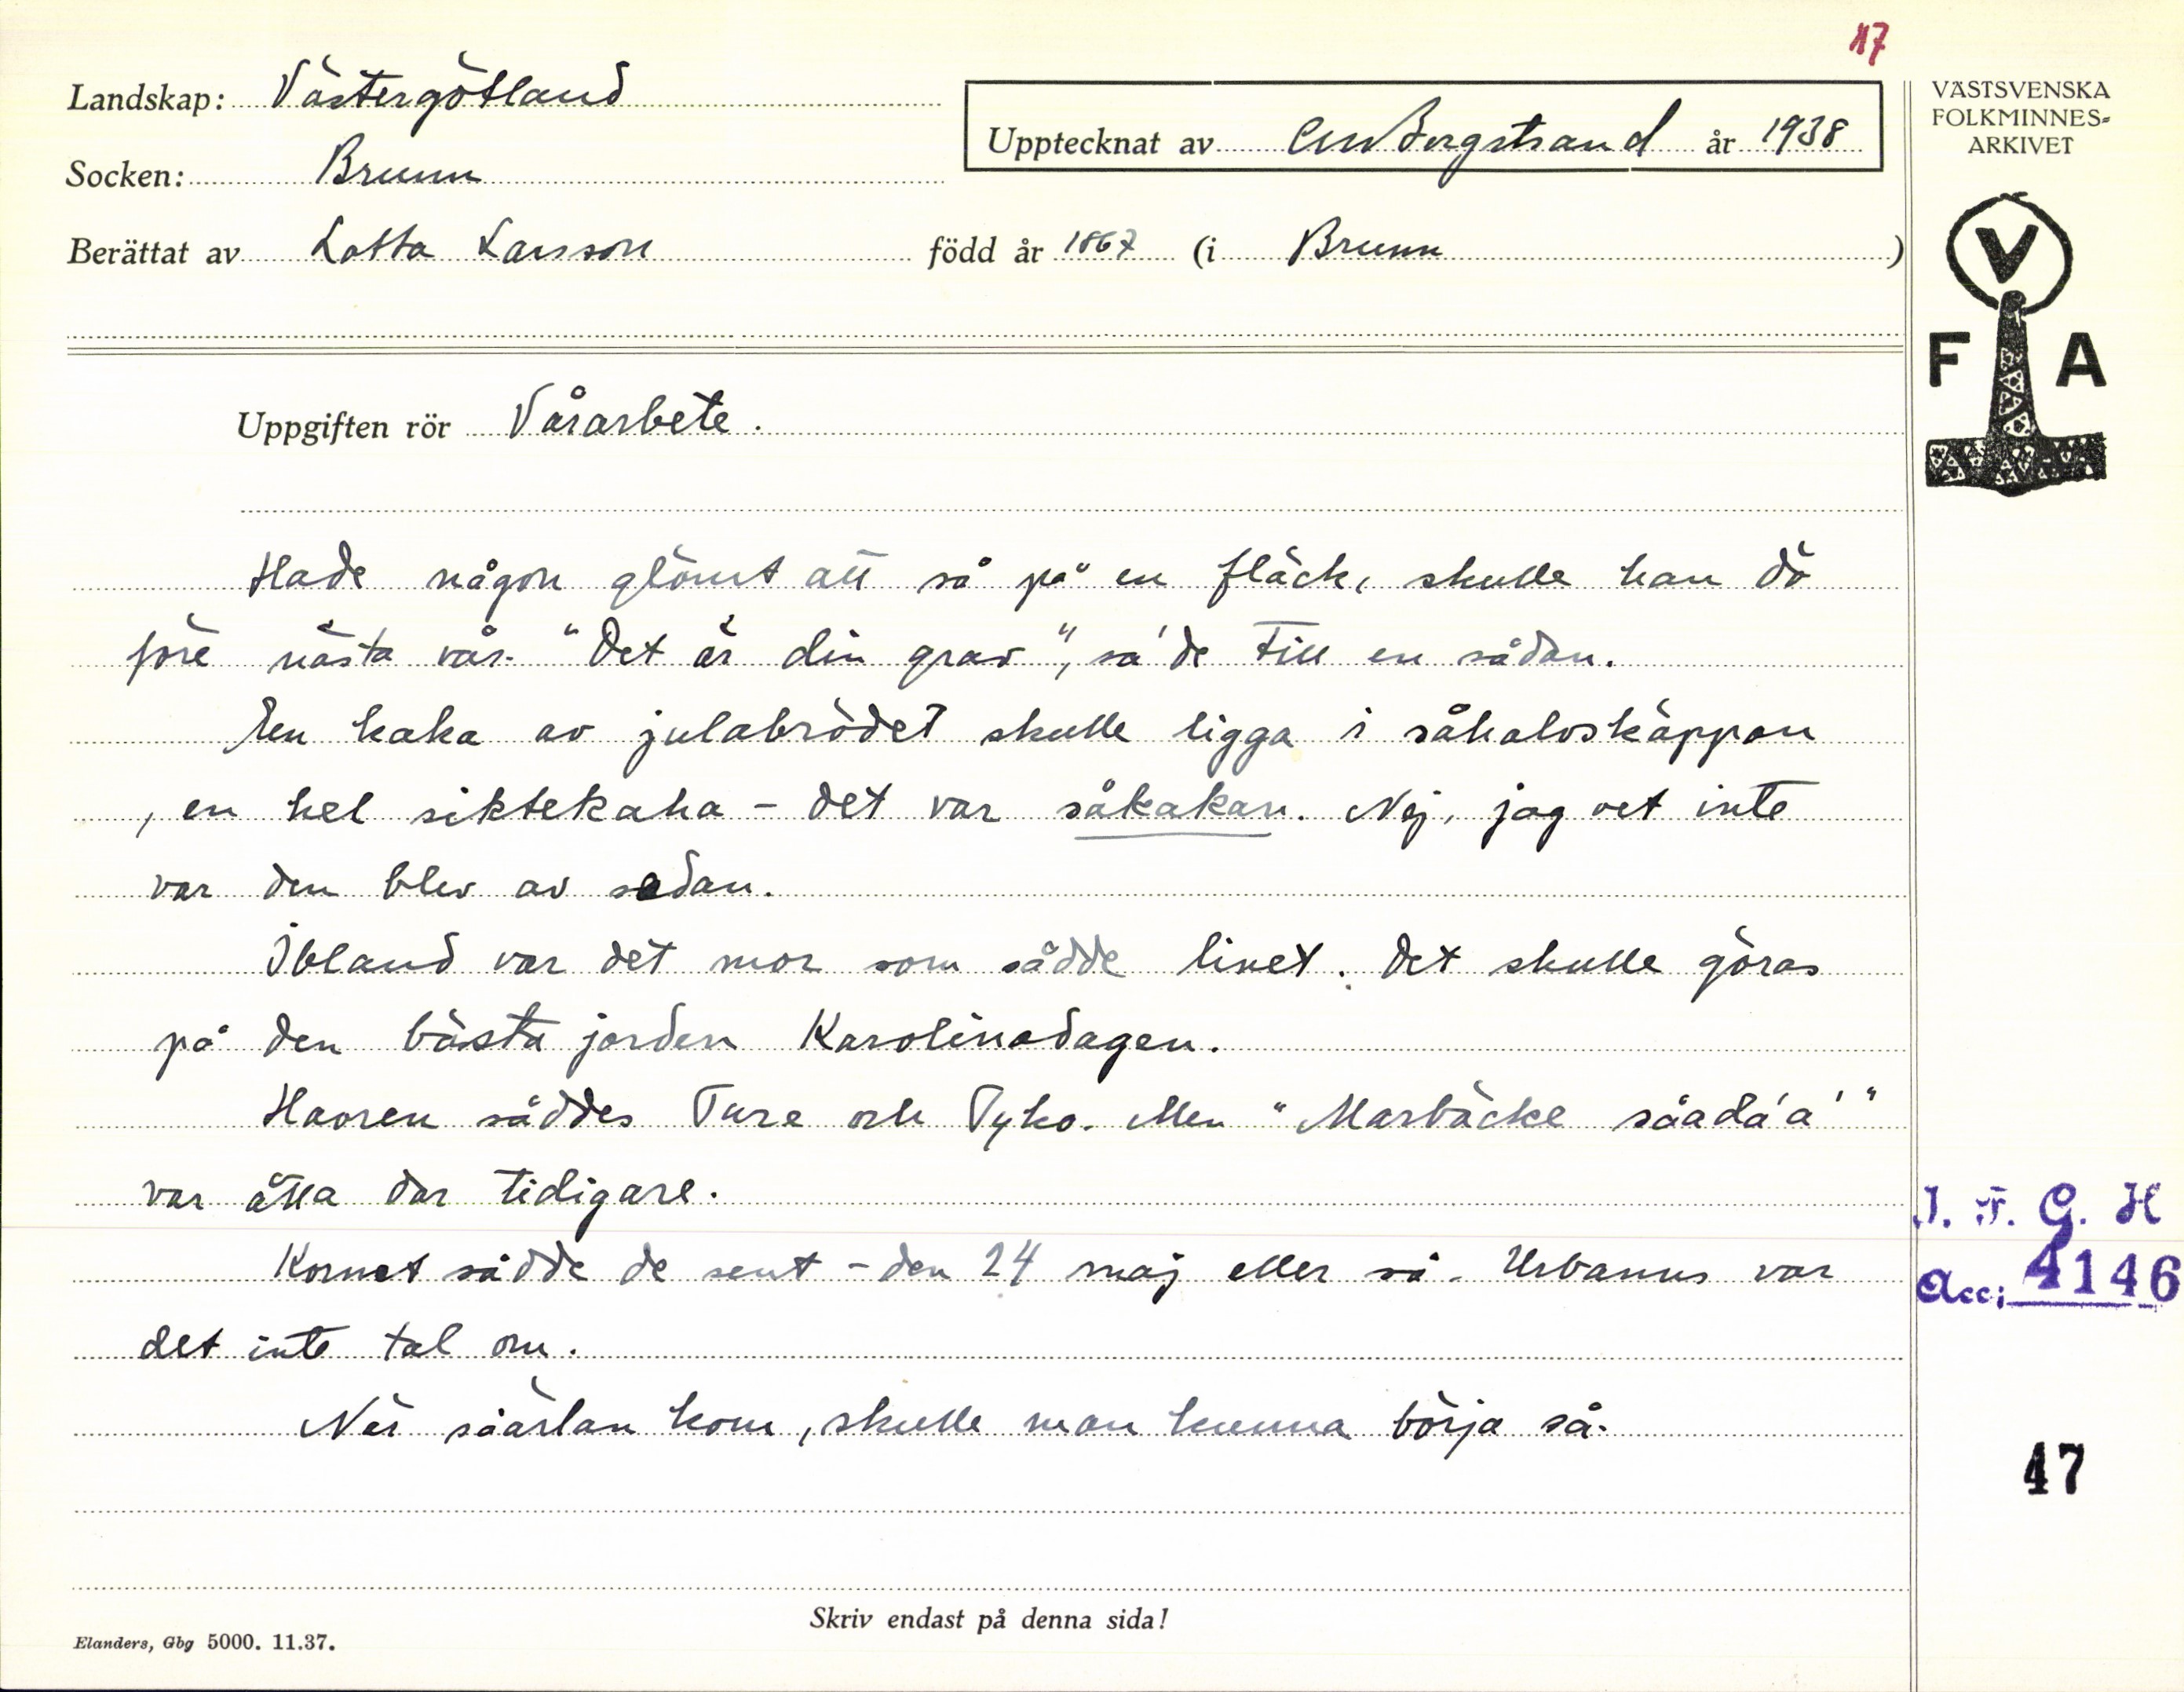 17
Landskap: Västergötland
Upptecknat av CM Bergstrand år 1938
VÄSTSVENSKA
FOLKMINNES-
ARKIVET
Socken: Brunn
Berättat av Lotta Larsson född år 1867 (i Brunn )
V
F A
Uppgiften rör Vårarbete.
Hade någon glömt att så på en fläck, skulle han dö
före nästa vår. "Det är din grav", sa' de till en sådan.
En kaka av julabrödet skulle ligga i såhalvskäppan
, en hel siktekaka - det var såkakan. Nej, jag vet inte
var den blev av sedan.
Ibland var det mor som sådde linet. Det skulle göras
på den bästa jorden Karolinadagen.
Havren såddes Ture och Tyko. Men "Marbäcke såadá'a'"
var åtta dar tidigare.
Kornet sådde de sent - den 24 maj eller så. Urbanus var
det inte tal om.
När såärlan kom, skulle man kunna börja så.
I. F. G. H
Acc: 4146
47
Skriv endast på denna sida!
Elanders, Gbg 5000. 11.37.